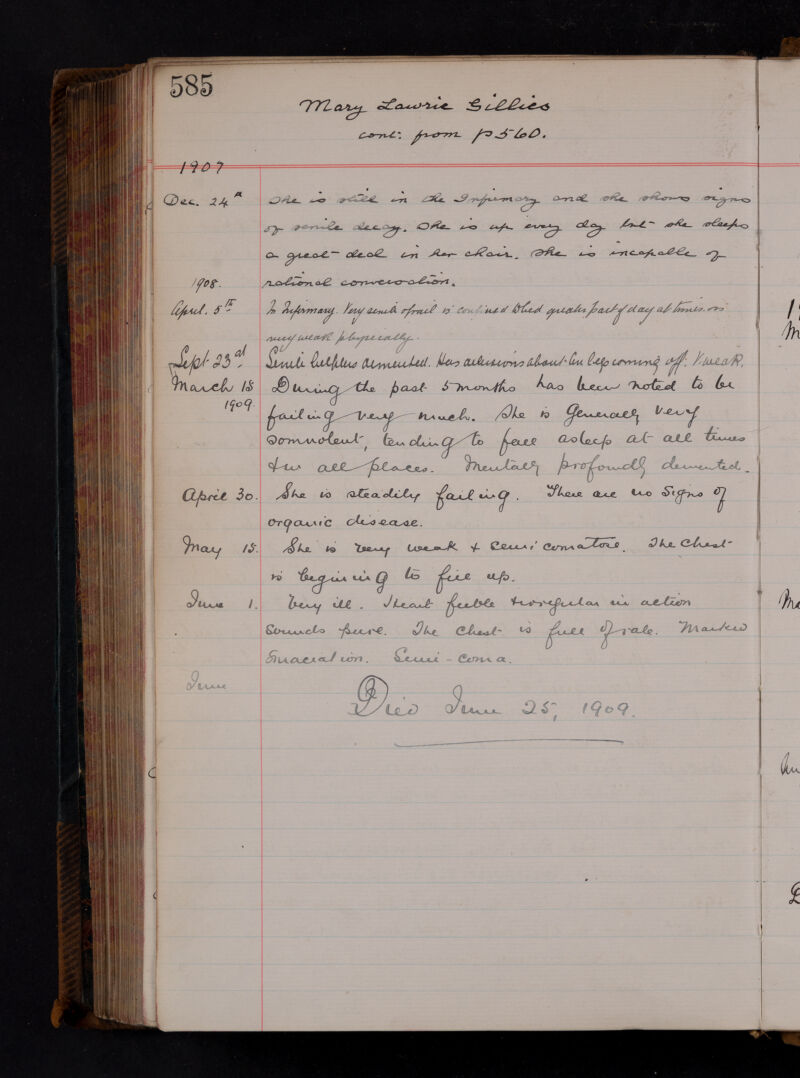 585
Mary Lawrie Gillies
cont: from p 560.
1907
Dec. 24th She is still in the Infirmary and she shows signs
of senile decay. She is up every day but she sleeps
a great deal in her chair. She is incapable of
1908. rational conversation.
April. 5th In Infirmary. Very senile & frail is confined to bed greater part of day at times. is
very weak physically.
Sept 23rd. Senile helpless demented. Has delusions about her legs coming off. V weak.
March 15 During the past 5 months has been noted to be
1909. failing very much. She is Generally very
somnolent, tending to fall asleep at all times
& in all places. Mentally profoundly demented.
April 30. She is steadily failing. There are no Signs of
organic disease.
May 15. She is very weak & semi comatose. The Chest
is beginning to fill up.
June 1. Very ill. Heart feeble & irregular in action
Sounds pure. The Chest is full of rale. Marked
Emaciation. Semi-coma.
June
Died June 25, 1909.